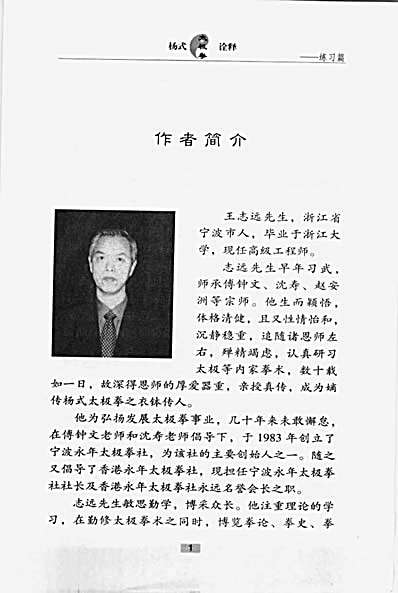 杨式太极拳诠释
——练习篇
作者简介
王志远先生，浙江省
宁波市人，毕业于浙江大
学，现任高级工程师。
志远先生早年习武，
师承傅钟文、沈寿、赵安
洲等宗师。他生而颖悟，
体格清健，且又性情怡和，
沉静稳重，追随诸恩师左
右，殚精竭虑，认真研习
太极等内家拳术，数十载
如一日，故深得恩师的厚爱器重，亲授真传，成为嫡
传杨式太极拳之衣钵传人。
他为弘扬发展太极拳事业，几十年来未敢懈怠，
在傅钟文老师和沈寿老师倡导下，于1983年创立了
宁波永年太极拳社，为该社的主要创始人之一。随之
又倡导了香港永年太极拳社，现担任宁波永年太极拳
社社长及香港永年太极拳社永远名誉会长之职。
志远先生敏思勤学，博采众长。他注重理论的学
习，在勤修太极拳术之同时，博览拳论、拳史、拳
1